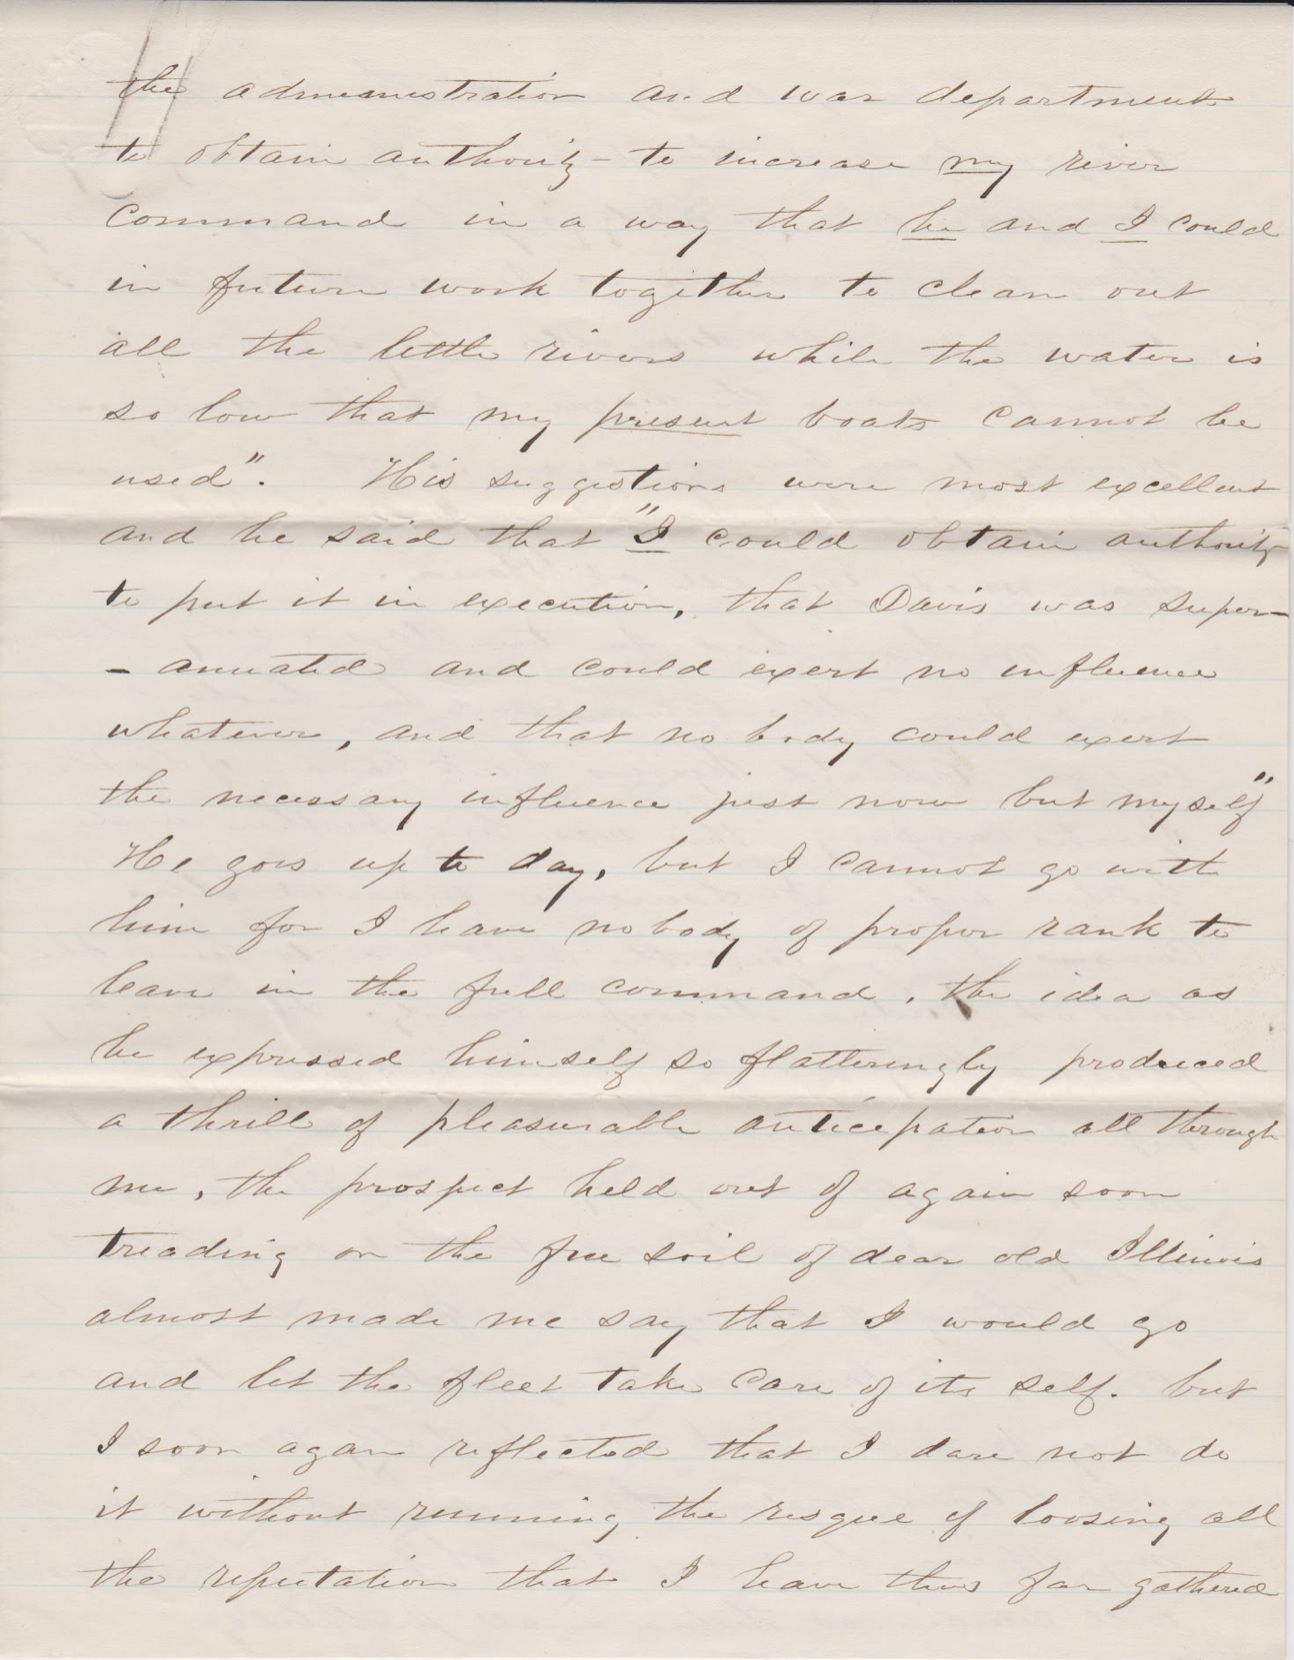 the admeinistration and war department
to obtain authority – to increase my river
command in a way that he and I could
in future work together to clean out
all the little rivers while the water is
so low that my present boats cannot be
used". His suggestions were most excellent
and he said that "I could obtain authority
to put it in execution, that Davis was super-
- annuated and could exert no influence
whatever, and that no body could exert
the necessary influence just now but myself"
He goes up to day, but I cannot go with
him for I have nobody of proper rank to
leave in the full command. the idea as
he expressed himself so flatteringly produced
a thrill of pleasurable anticipation all through
me, the prospect held out of again soon
treading on the free soil of dear old Illinois
almost made me say that I would go
and let the fleet take care of its self. but
I soon again reflected that I dare not do
it without running the resque of loosing all
the reputation that I have thus far gathered